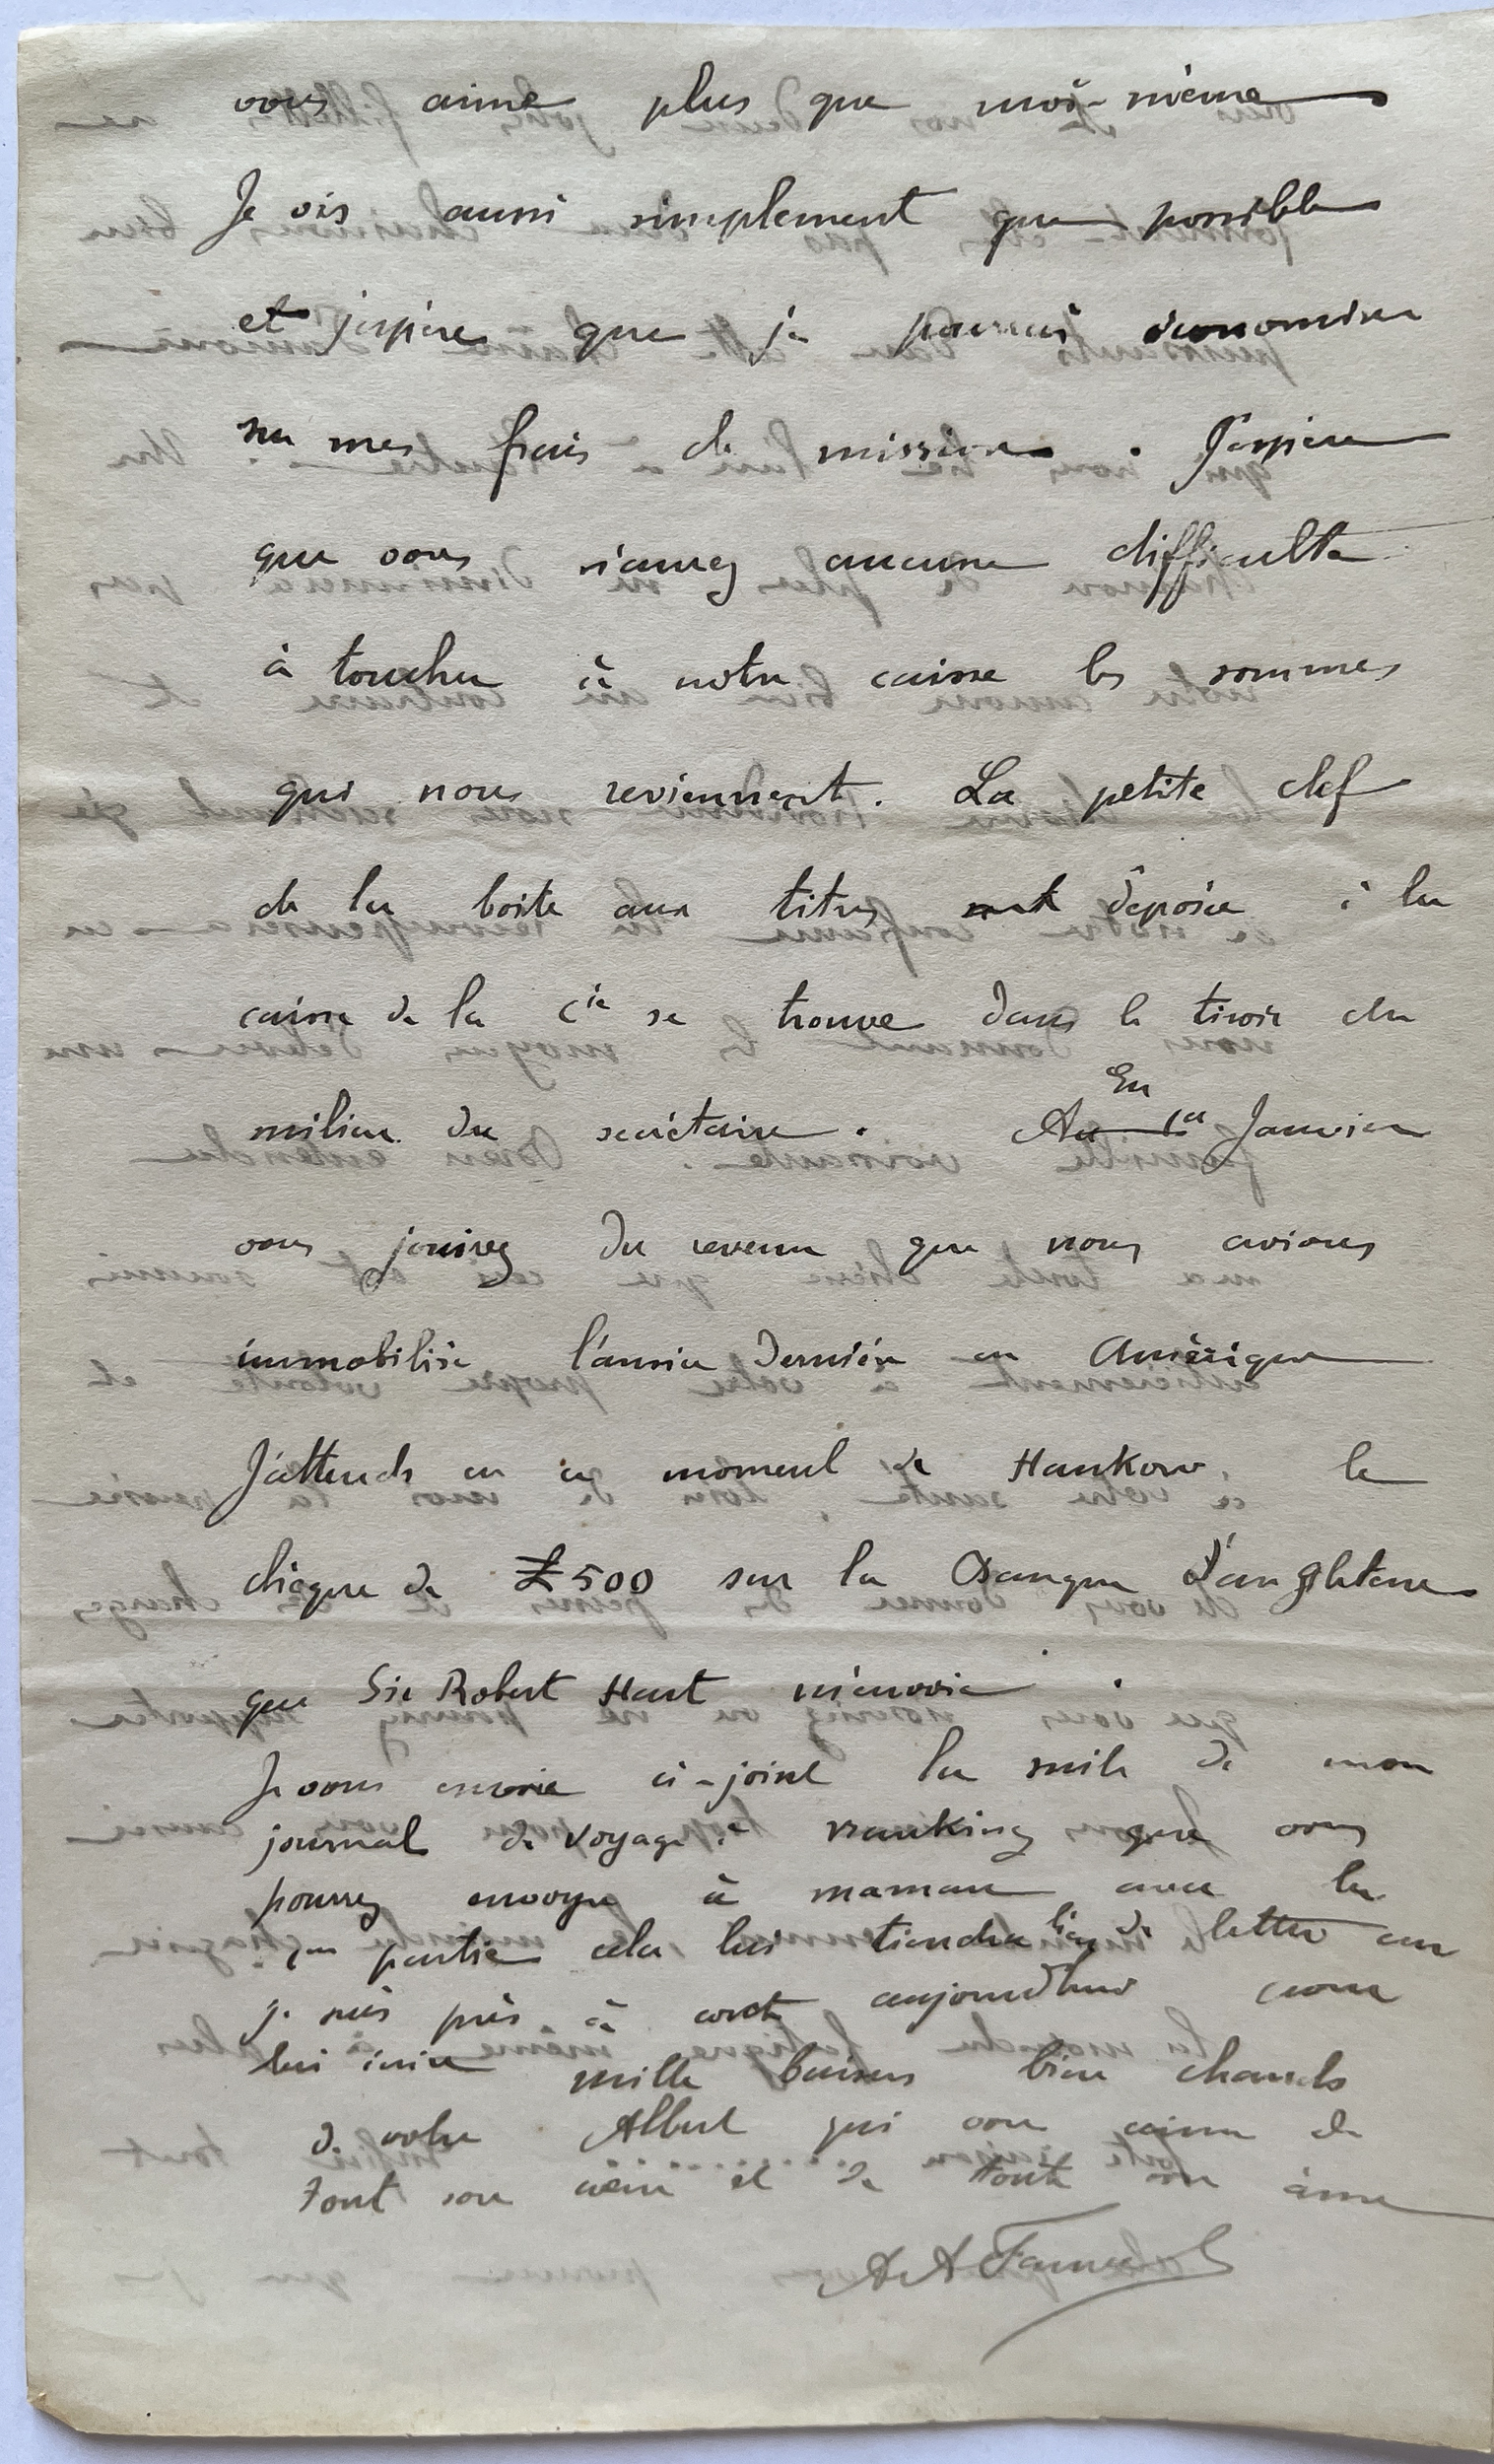 vous aime plus que moi-même
Je vis aussi simplement que possible
et j'espère que je pourrai économiser
sur mes frais de mission. J'espère
que vous n'aurez aucune difficulté
à toucher à notre caisse les sommes
qui nous reviennent. La petite clef
de la boite aux titres est déposée à la
caisse de la Cie se trouve dans le tiroir du
milieu du secrétaire. Au 1er En Janvier
vous jouirez du revenu que nous avions
immobilisé l'année dernière en Amérique
J'attends en ce moment de Hankow, le
chèque de £500 sur la Banque d'Angleterre
que Sir Robert Hart m'envoie.
Je vous envoie ci-joint la suite de mon
journal de voyage à Nanking que vous
pourrez envoyer à maman avec la
1ère partie cela lui tiendra lieu de lettre car
je suis pris à court aujourd'hui pour
lui écrire mille baisers bien chauds
de votre Albert qui vous aime de
tout son cœur et de toute son âme
A A Fauvel